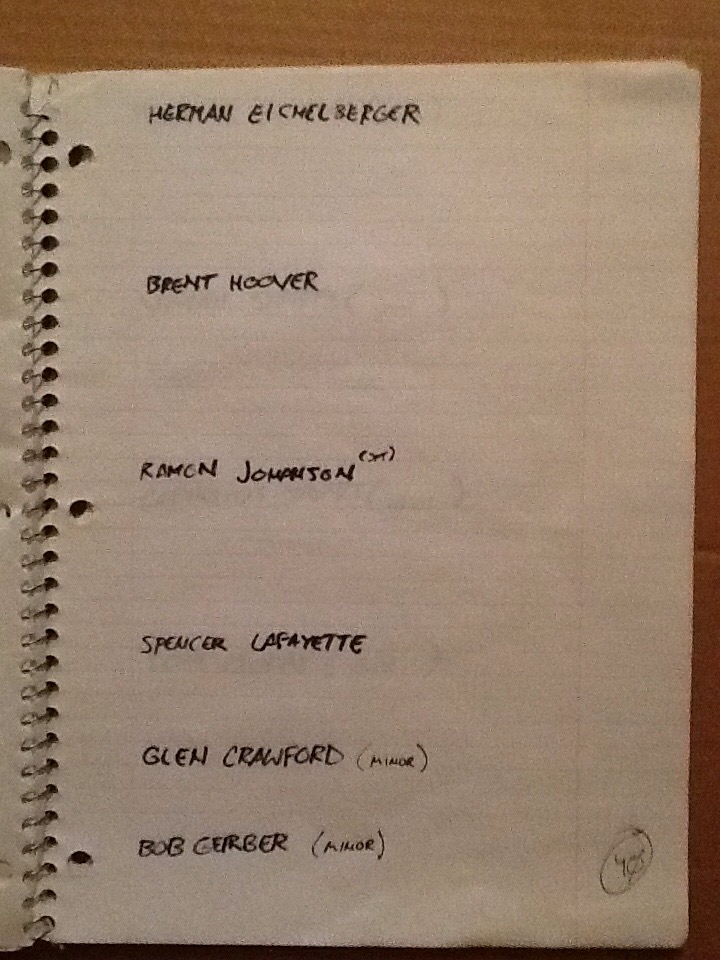 HERMAN EICHELBERGER
BRENT HOOVER
RAMON JOHANSON
SPENCER LAFAYETTE
GLEN CRAWFORD (MINOR)
BOB GERBER (MINOR)